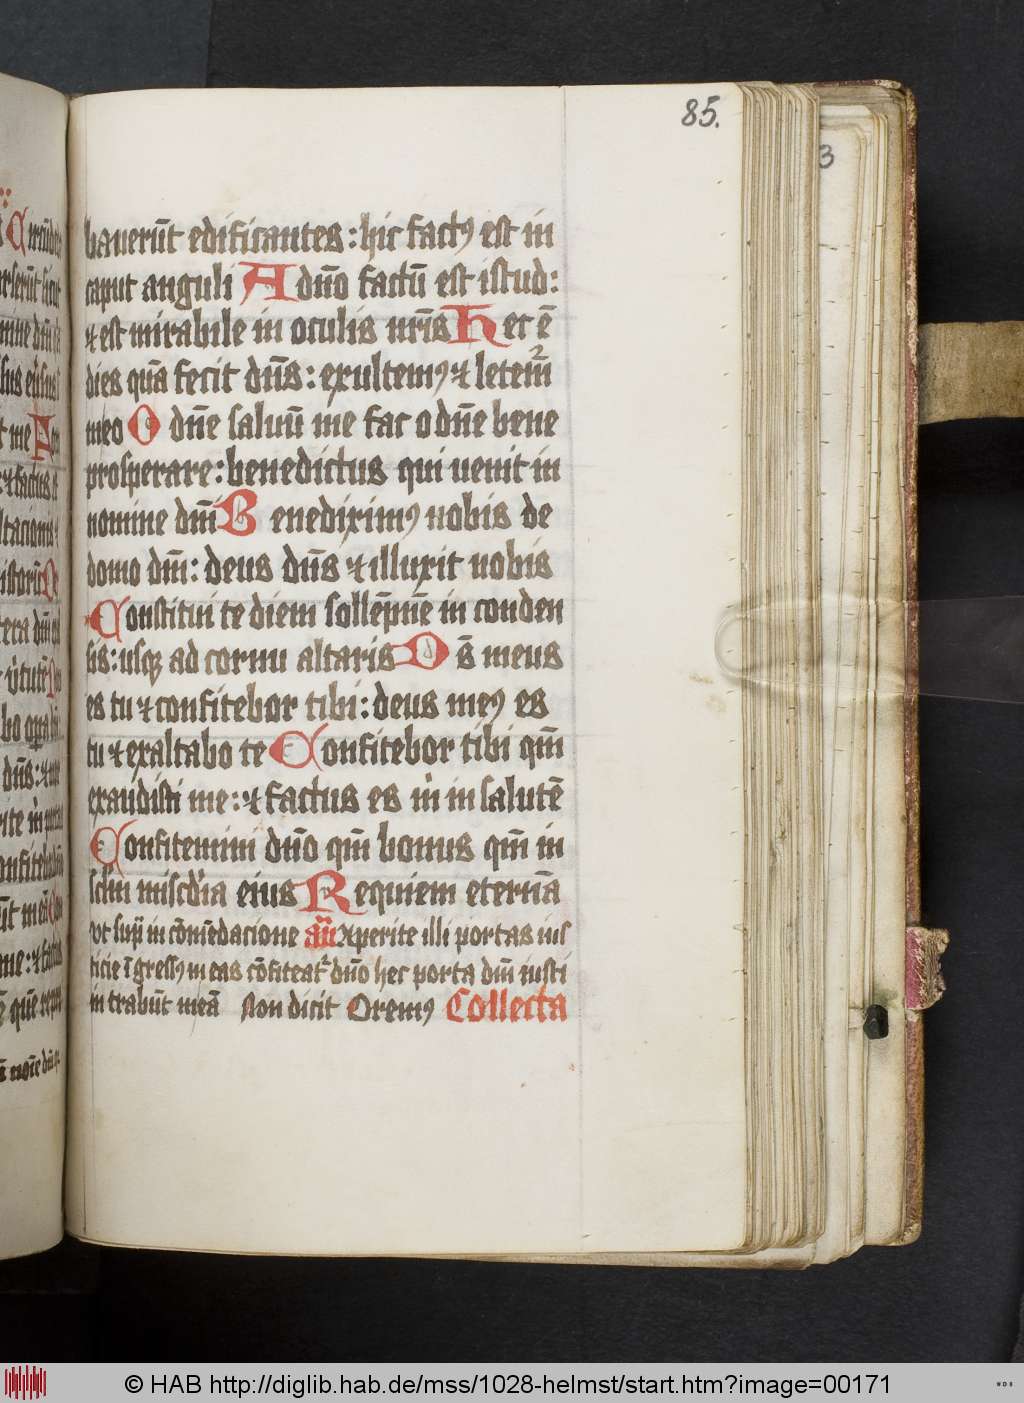 85.
3
bauerūt edificantes : hic factꝰ est in
caput anguli A dn̄o factū est istud :
⁊ est mirabile in oculis nr̄is Hec ē
dies quā fecit dn̄s : exultemꝰ ⁊ letem̄
meo O dn̄e saluū me fac o dn̄e bene
prosperare : benedictus qui uenit in
nomine dn̄i Benediximꝰ uobis de
domo dn̄i : deus dn̄s ⁊ illuxit nobis
Constitui te diem sollēpnē in conden
sis : usqꝫ ad cornu altaris Ds̄ meus
es tu ⁊ confitebor tibi : deus meꝰ es
tu ⁊ exaltabo te Confitebor tibi qm̄
exaudisti me : ⁊ factus es m̍ in salutē
Confitemini dn̄o qm̄ bonus qm̄ in
sclm̄ mĩscdĩa eius Requiem eternā
vt sup̄ in cōmēdacione añ xperite illi portas ius
ticie īgressꝰ in eas cōfiteat᷑ dn̄o hec porta dn̄i iusti
intrabūt meā Non dicit Oremꝰ Collecta
© HAB http://diglib.hab.de/mss/1028-helmst/start.htm?image=00171